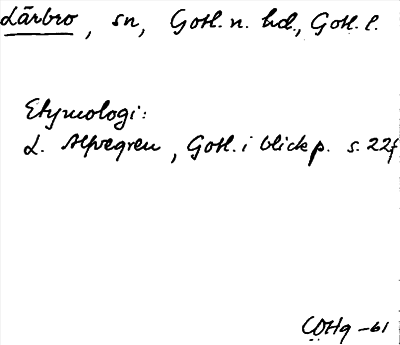 Lärbro, sn, Gotl. n. hd., Gotl. l.
Etymologi:
L. Alfvegren, Gotl. i blickp. s. 22f
CDHg -61